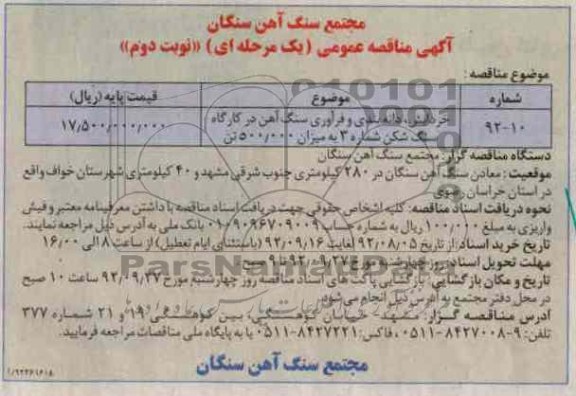 مجتمع سنگ آهن سنگان
آگهی مناقصه عمومی (یک مرحله ای) «نوبت دوم»
موضوع مناقصه :
شماره موضوع قیمت پایه (ریال)
۹۲-۱۰ خردایش، دانه بندی و فرآوری سنگ آهن در کارگاه سنگ شکن شماره ۳ به میزان ۵۰۰/۰۰۰ تن ۱۷,۵۰۰,۰۰۰,۰۰۰
دستگاه مناقصه گزار: مجتمع سنگ آهن سنگان
موقعیت : معادن سنگ آهن سنگان در ۲۸۰ کیلومتری جنوب شرقی مشهد و ۴۰ کیلومتری شهرستان خواف واقع
در استان خراسان رضوی
نحوه دریافت اسناد مناقصه: کلیه اشخاص حقوقی جهت دریافت اسناد مناقصه با داشتن معرفینامه معتبر و فیش
واریزی به مبلغ ۱۰۰/۰۰۰ ریال به شماره حساب ۰۱۰۹۰۹۶۷۰۹۰۰۹ بانک ملی به آدرس ذیل مراجعه نمایند.
تاریخ خرید اسناد: از تاریخ ۹۲/۰۸/۰۵ لغایت ۹۲/۰۹/۱۶ (باستثنای ایام تعطیل) از ساعت ۸ الی ۱۶/۰۰
مهلت تحویل اسناد: روز چهارشنبه مورخ ۹۲/۰۹/۲۷ تا ۹ صبح
تاریخ و مکان بازگشایی: بازگشایی پاکت های اسناد مناقصه روز چهارشنبه مورخ ۹۲/۰۹/۲۷ ساعت ۱۰ صبح
در محل دفتر مجتمع به آدرس ذیل انجام می شود.
آدرس مناقصه گزار: مشهد، خیابان کوهسنگی، بین کوهسنگی ۱۹ و ۲۱ شماره ۳۷۷
تلفن: ۹-۸۴۲۷۰۰۸-۰۵۱۱، فاکس: ۸۴۲۷۲۲۱-۰۵۱۱ یا به پایگاه ملی مناقصات مراجعه فرمایید.
مجتمع سنگ آهن سنگان
ParsNamadData